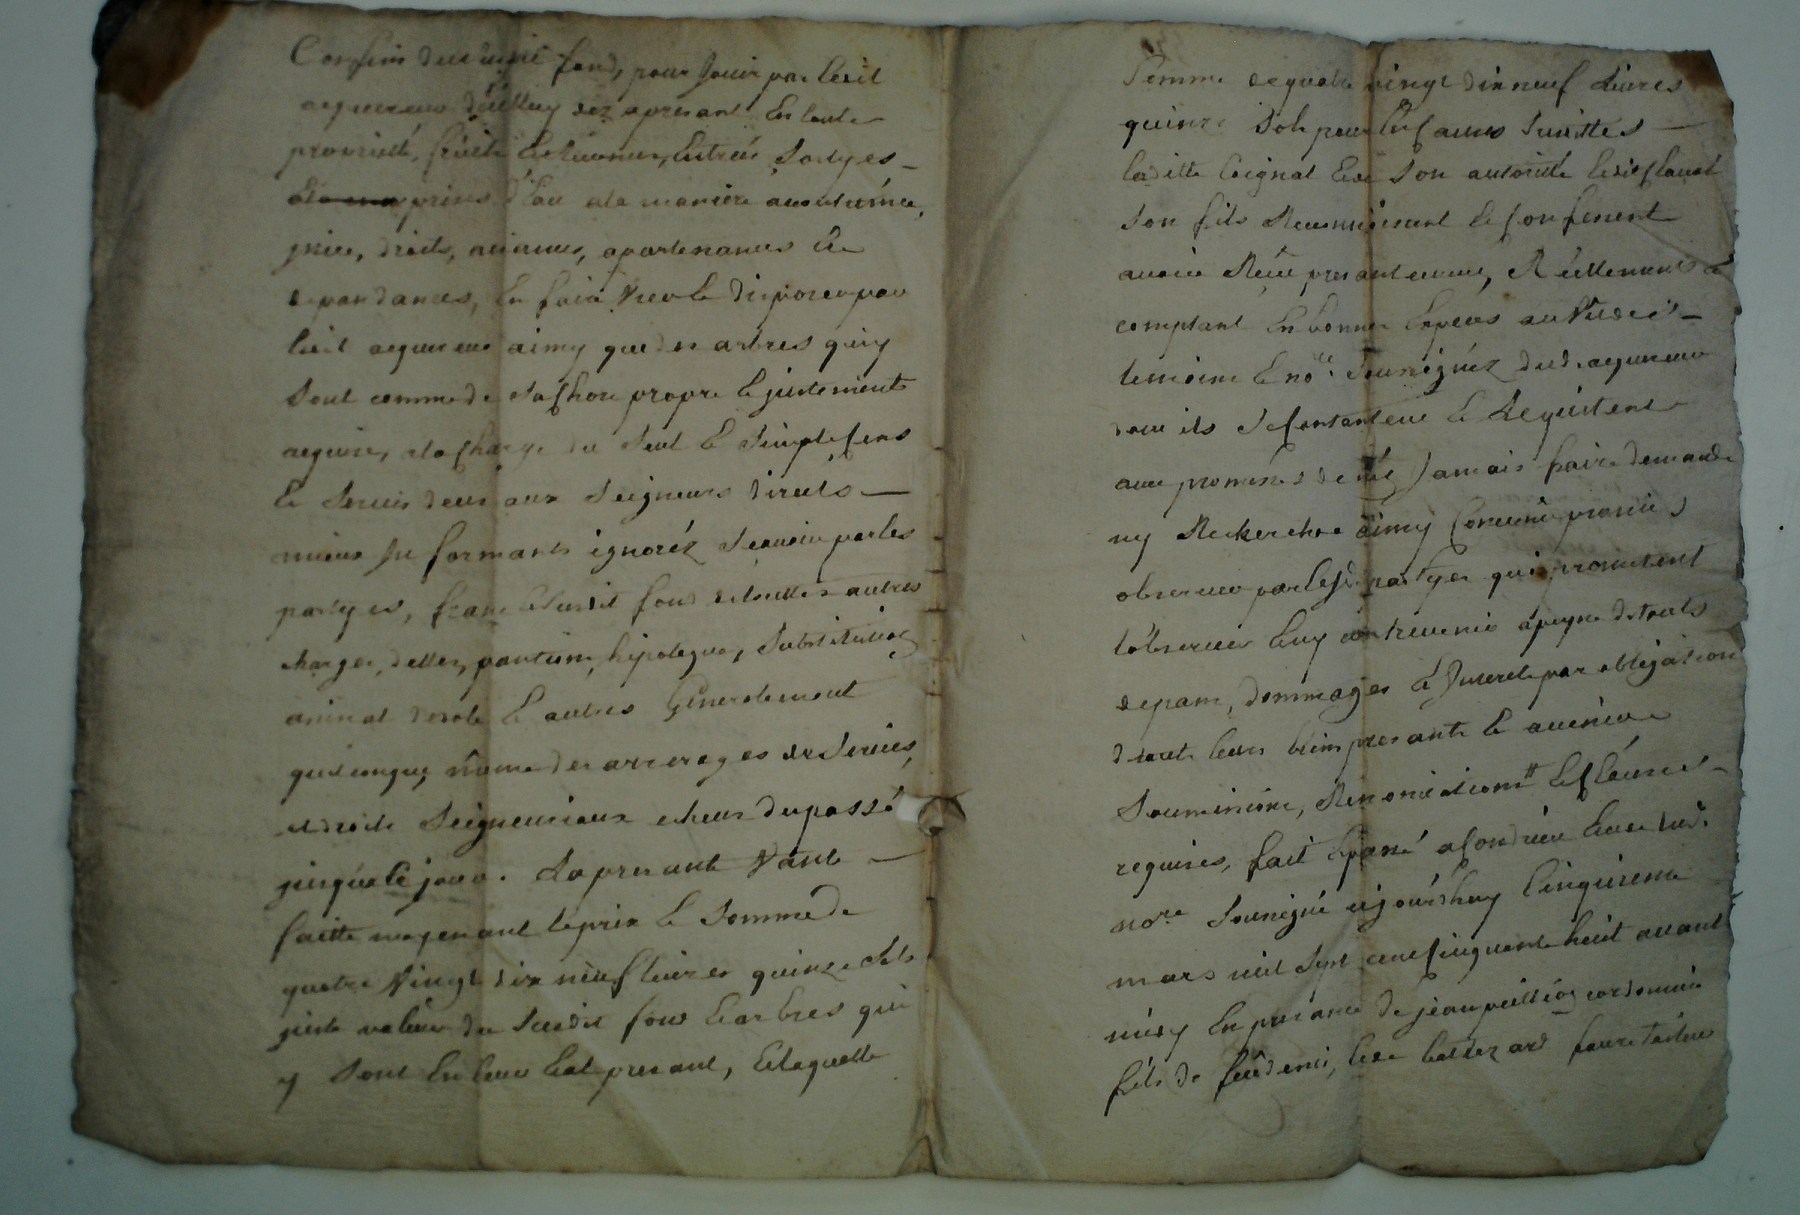 Confins dudit fond, pour jouir par ledit
acquereur dez apresant En toute
proprietté, fruits Et revenus, Entrées Sortyes
prises d'Eau a la maniere accoutumée,
droits, actions, apartenances Et
depandances, En faire Vser Et disposer par
ledit acquereur aimy que des arbres quiy
Sont comme de Sa chose propre Et justement
acquise, a la charge du Seul Et Simple fens
Et Servis deus aux Seigneurs directs
mieux Informants ignorés Scavoir par les
partyes, franc Ledusdit fond de touttes autres
charges, dettes, pantion, hipoteque, Substitution
Et autres Generalement
quelconque, même des arrerages de Servies,
et droits Seigneuriaux echeus du passé
jusqu'a Ce jour. La presante Vante
faitte moyenant le prix Et Somme de
quatre Vingt dix neuf livres quinze Sols
juste valeur du Susdit fond Et arbres qui
y Sont En leur Etat presant, Et laquelle
Somme de quatre vingt dix neuf Livres
quinze Sols pour les causes Susdittes
laditte Coignat Et de Son autorité ledit
Son fils Reconnoissent Et confessent
avoir Reçu presantement, Réellement Et
comptant En bonnes Especes au Vû desd.
temoins Et no.re Soussignéz dud. acquereur
dont ils Se contantent Et Le quittent
avec promesses de ne Jamais faire demande
ny Recherche aimy Convenu promis
observer par lesd. partyes qui promettent
L'observer Et ny contrevenir a peyne de touts
depans, dommages Et Interets par obligation
de touts leurs biens presants Et avenir
Soumissions, Renonciations Et clauses
requises, fait Et passé a Condrieu Etude dud.
no.re Soussigné cejourd'huy Cinquieme
mars mil Sept cent cinquante huit avant
midy En presance de jean cordonnier
fils de feu denis, Et de baltezard faure tailleur